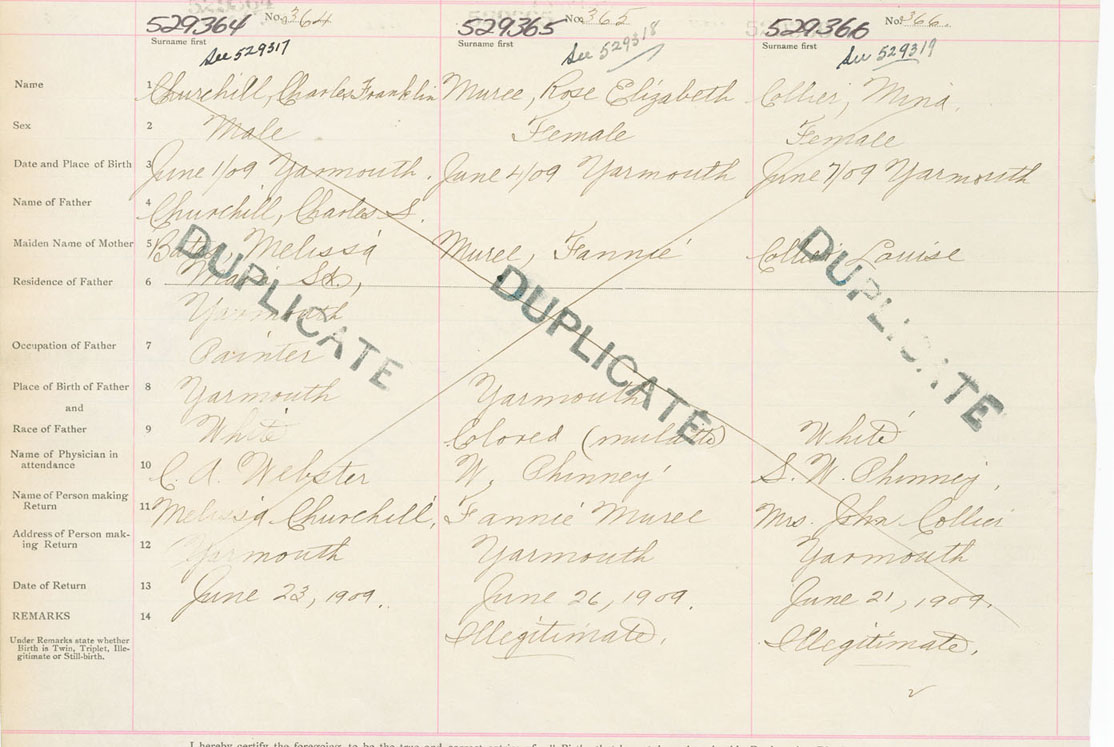 529364 No. 364
529365 No. 365
529366 No. 366
Surname first See 529317
Surname first See 529318
Surname first See 529319
Name 1 Churchill, Charles Franklin Muree, Rose Elizabeth Collier, Mina.
Sex 2 Male Female Female
Date and Place of Birth 3 June 1/09 Yarmouth. June 4/09 Yarmouth June 7/09 Yarmouth
Name of Father 4 Churchill, Charles S.
Maiden Name of Mother 5 Melissa Muree, Fannie Collier Louise
Residence of Father 6 Main St.,
Yarmouth
Occupation of Father 7 Painter
Place of Birth of Father 8 Yarmouth Yarmouth
and
Race of Father 9 White Colored (mulatto) White
Name of Physician in
attendance 10 C. A. Webster W. Phinney S. W. Phinney,
Name of Person making
Return 11 Melissa Churchill, Fannie Muree Mrs. John Collier
Address of Person mak-
ing Return 12 Yarmouth Yarmouth Yarmouth
Date of Return 13 June 23, 1909. June 26, 1909. June 21, 1909.
REMARKS 14
Under Remarks state whether
Birth is Twin, Triplet, Ille-
gitimate or Still-birth.
Illegitimate. Illegitimate.
DUPLICATE
DUPLICATE
DUPLICATE